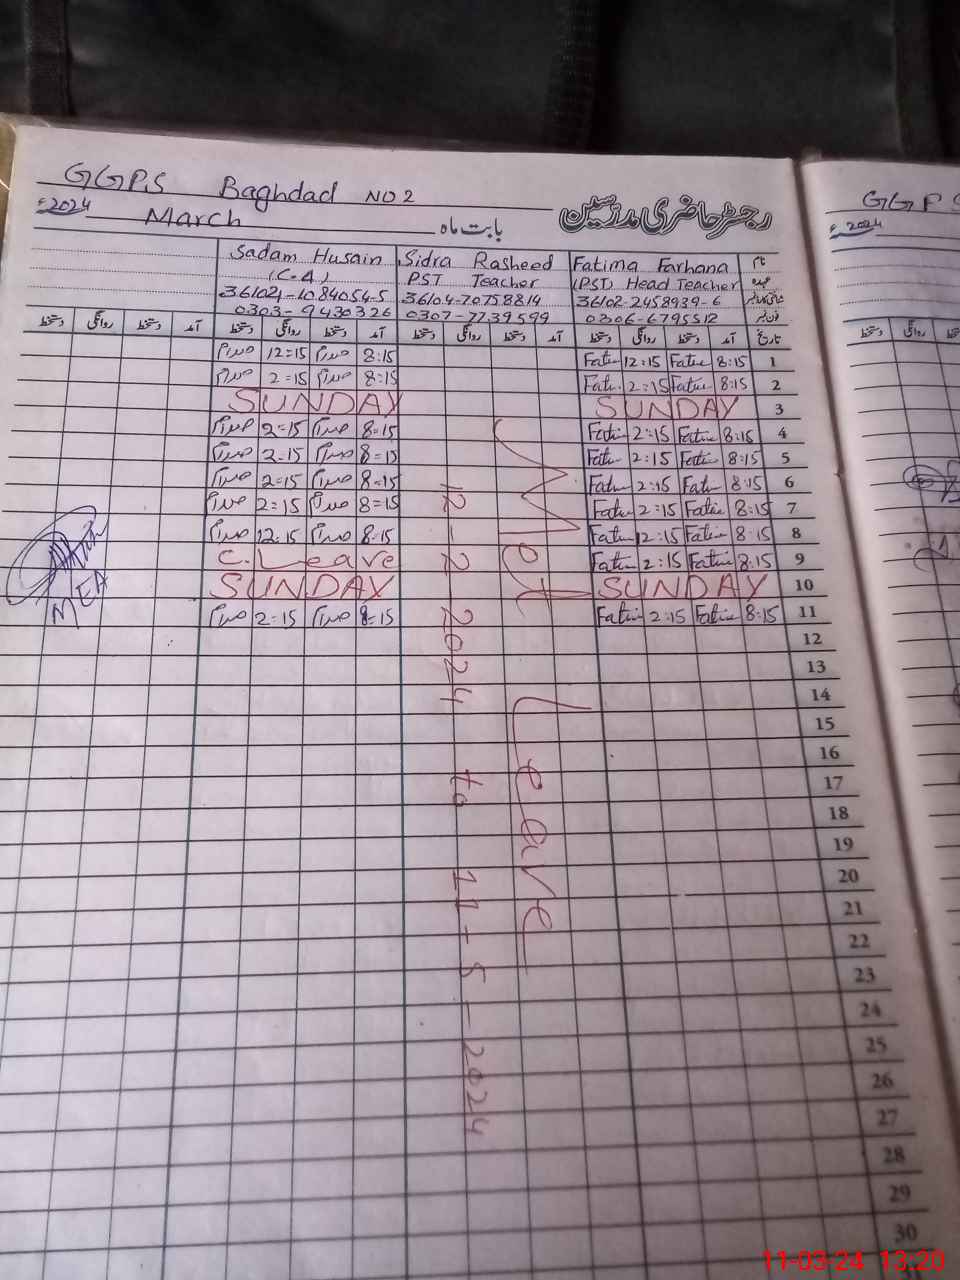 GGPS Baghdad NO 2
رجسٹر حاضری مدرسین
بابت ماہ March 2024ء
نام Fatima Farhana Sidra Rasheed Sadam Husain
عہدہ (PST) Head Teacher PST Teacher (C.A)
36102-2458939-6 36104-7075881-4 36102-1084054-5
فون نمبر 0306-6795512 0307-7739599 0303-9430326
تاریخ آمد دستخط روانگی دستخط آمد دستخط روانگی دستخط آمد دستخط روانگی دستخط آمد دستخط روانگی دستخط
1 8:15 Fatim 12:15 Fatim 8:15 صدام 12=15 صدام
2 8:15 Fatim 2:15 Fatim 8:15 صدام 2=15 صدام
3 SUNDAY SUNDAY
4 8:15 Fatim 2:15 Fatim 8=15 صدام 2=15 صدام
5 8:15 Fatim 2:15 Fatim 8=15 صدام 2=15 صدام
6 8:15 Fatim 2:15 Fatim 8=15 صدام 2=15 صدام
7 8:15 Fatim 2:15 Fatim 8=15 صدام 2=15 صدام
8 8:15 Fatim 12:15 Fatim 8:15 صدام 12=15 صدام
9 8:15 Fatim 2:15 Fatim C.Leave
10 SUNDAY SUNDAY
11 8:15 Fatim 2:15 Fatim 8=15 صدام 2=15 صدام
12
13
14
15
16
17
18
19
20
21
22
23
24
25
26
27
28
29
30
Met Leave
12-2-2024 to 11-5-2024
MEA
GGPS
2024ء
11-03-24 13:20